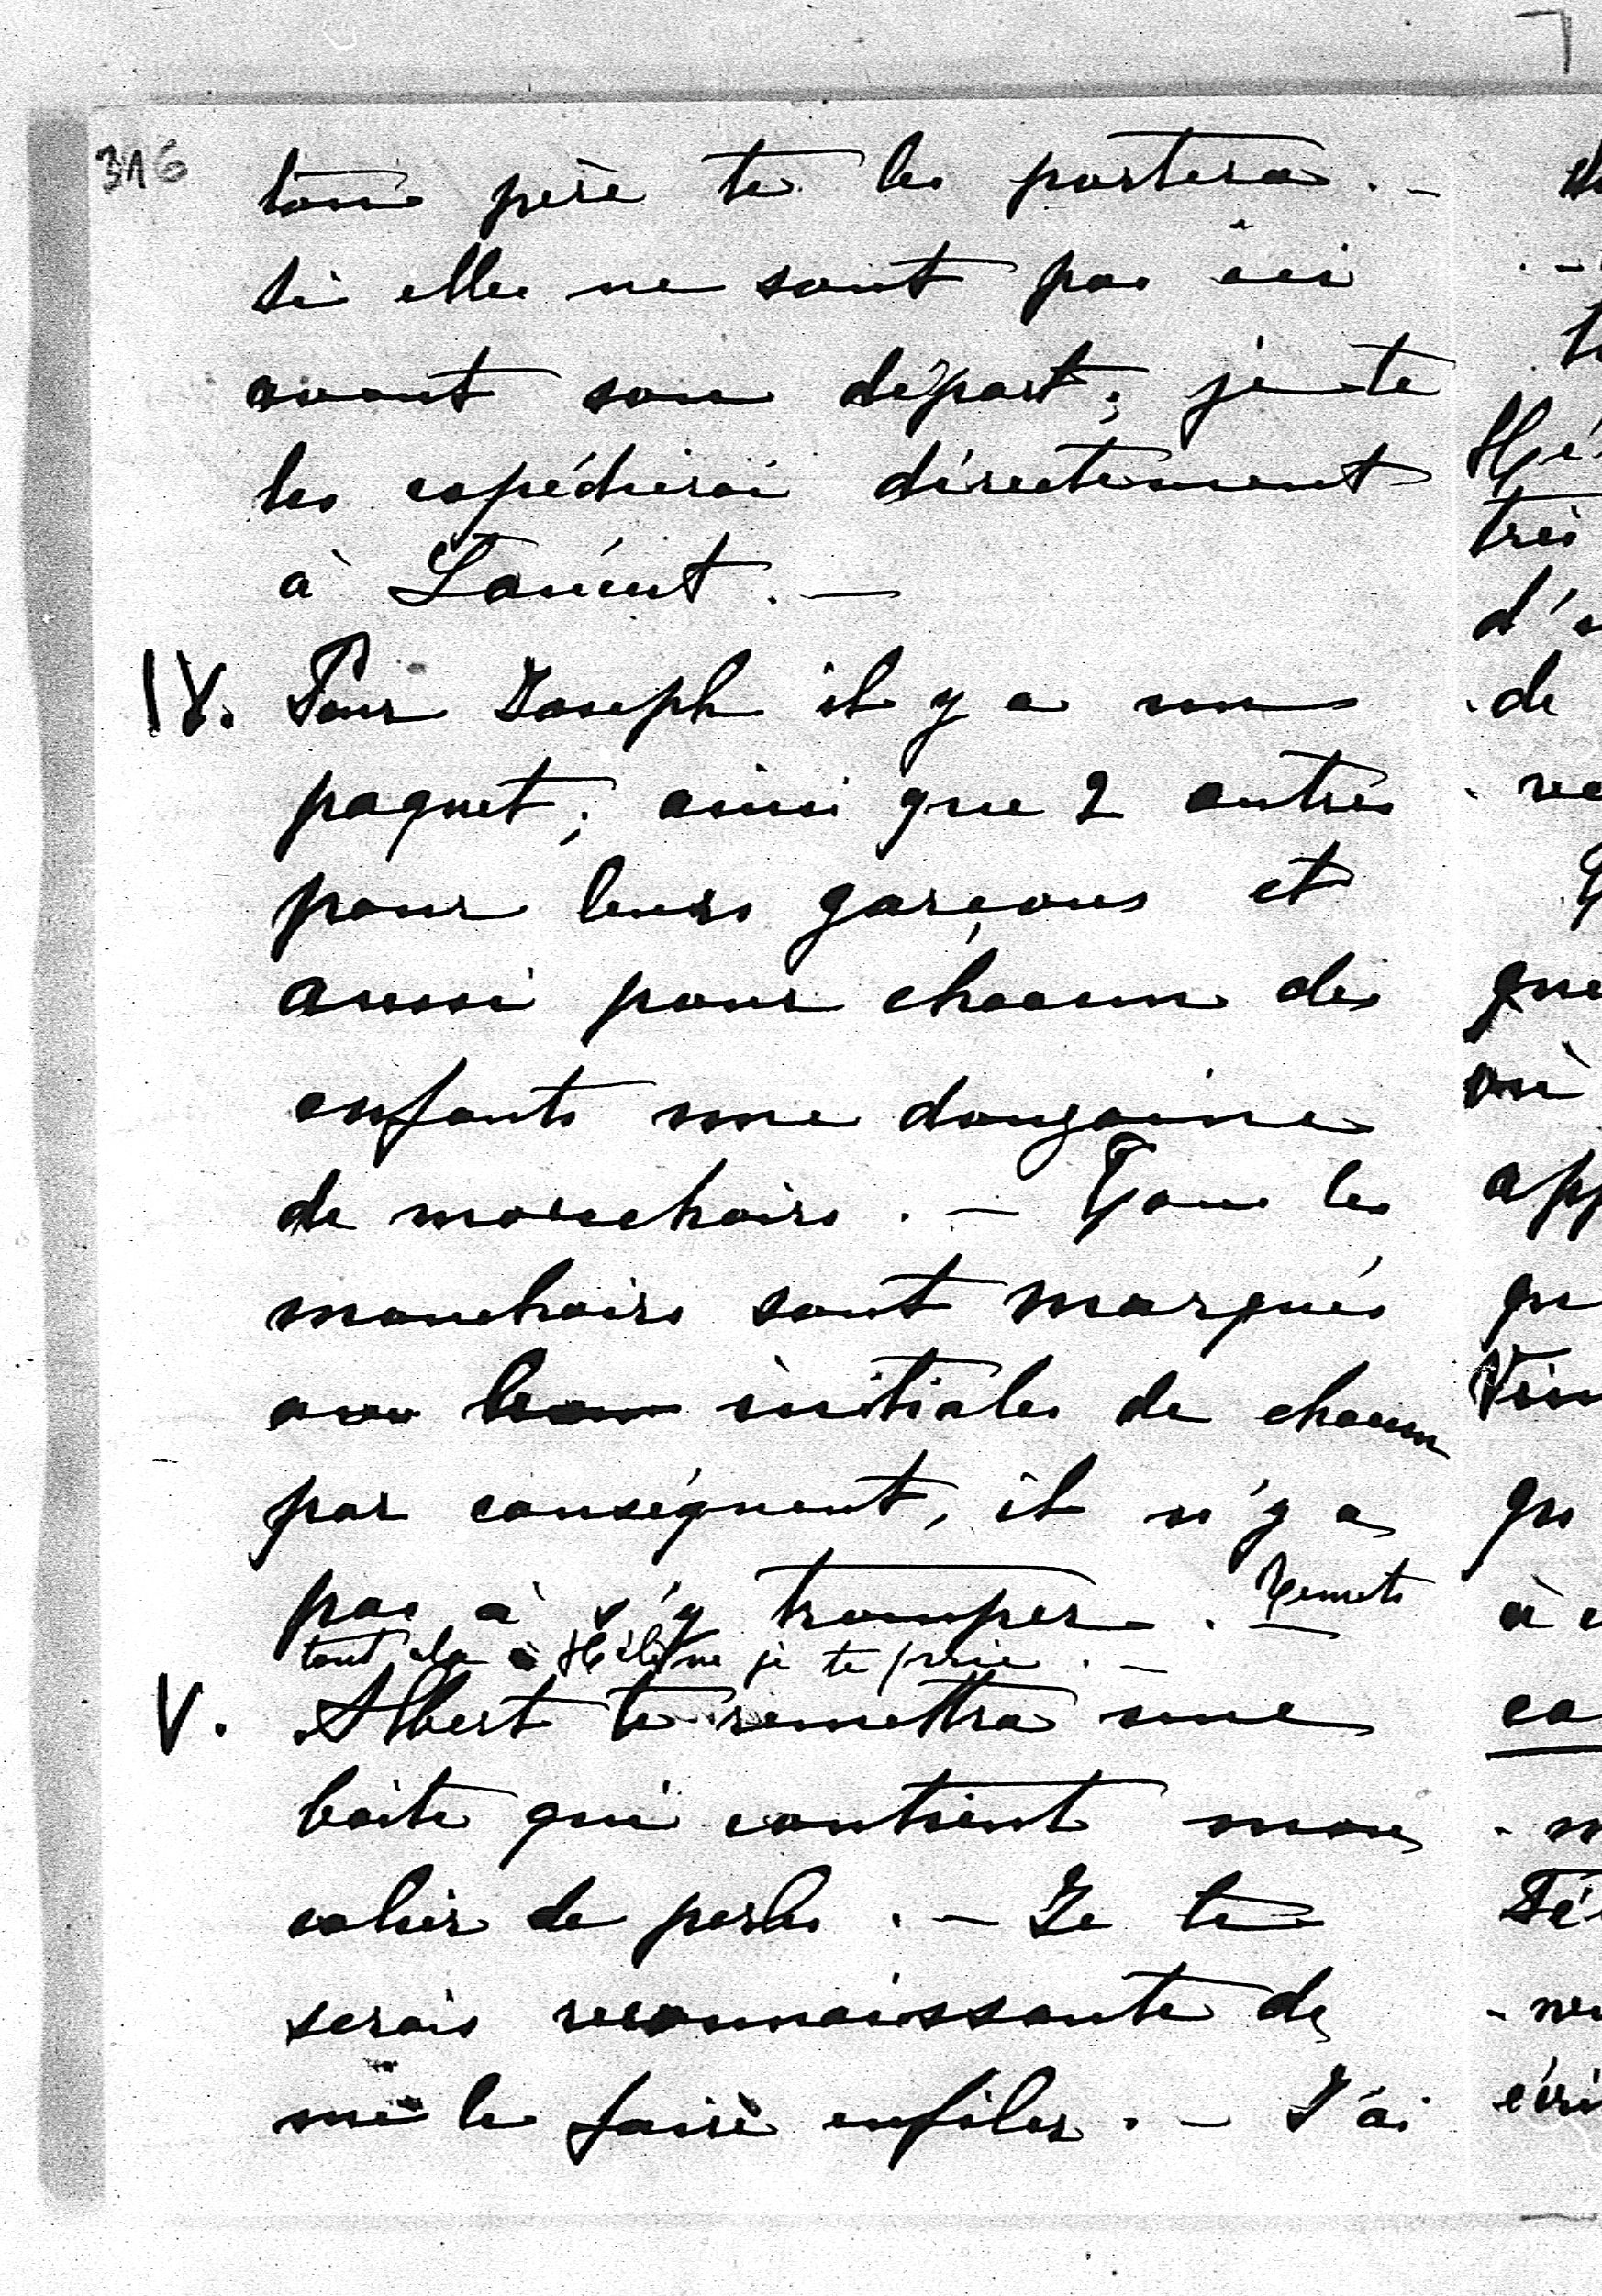 316
ton père te les portera. —
Si elles ne sont pas ici
avant son départ; je te
les expédierai directement
à
IV. Pour Joseph il y a un
paquet; ainsi que 2 autres
pour leurs garçons et
aussi pour chacun des
enfants une douzaine
de mouchoirs. — Tous les
mouchoirs sont marqués
aux initiales de chacun
par conséquent, il n'y a
pas à s'y tromper. — Remets
tout cela à Hélène je te prie. —
V. Albert te remettra une
boite qui contient mon
colier de perles. — Je te
serais reconnaissante de
me le faire enfiler. — J'ai